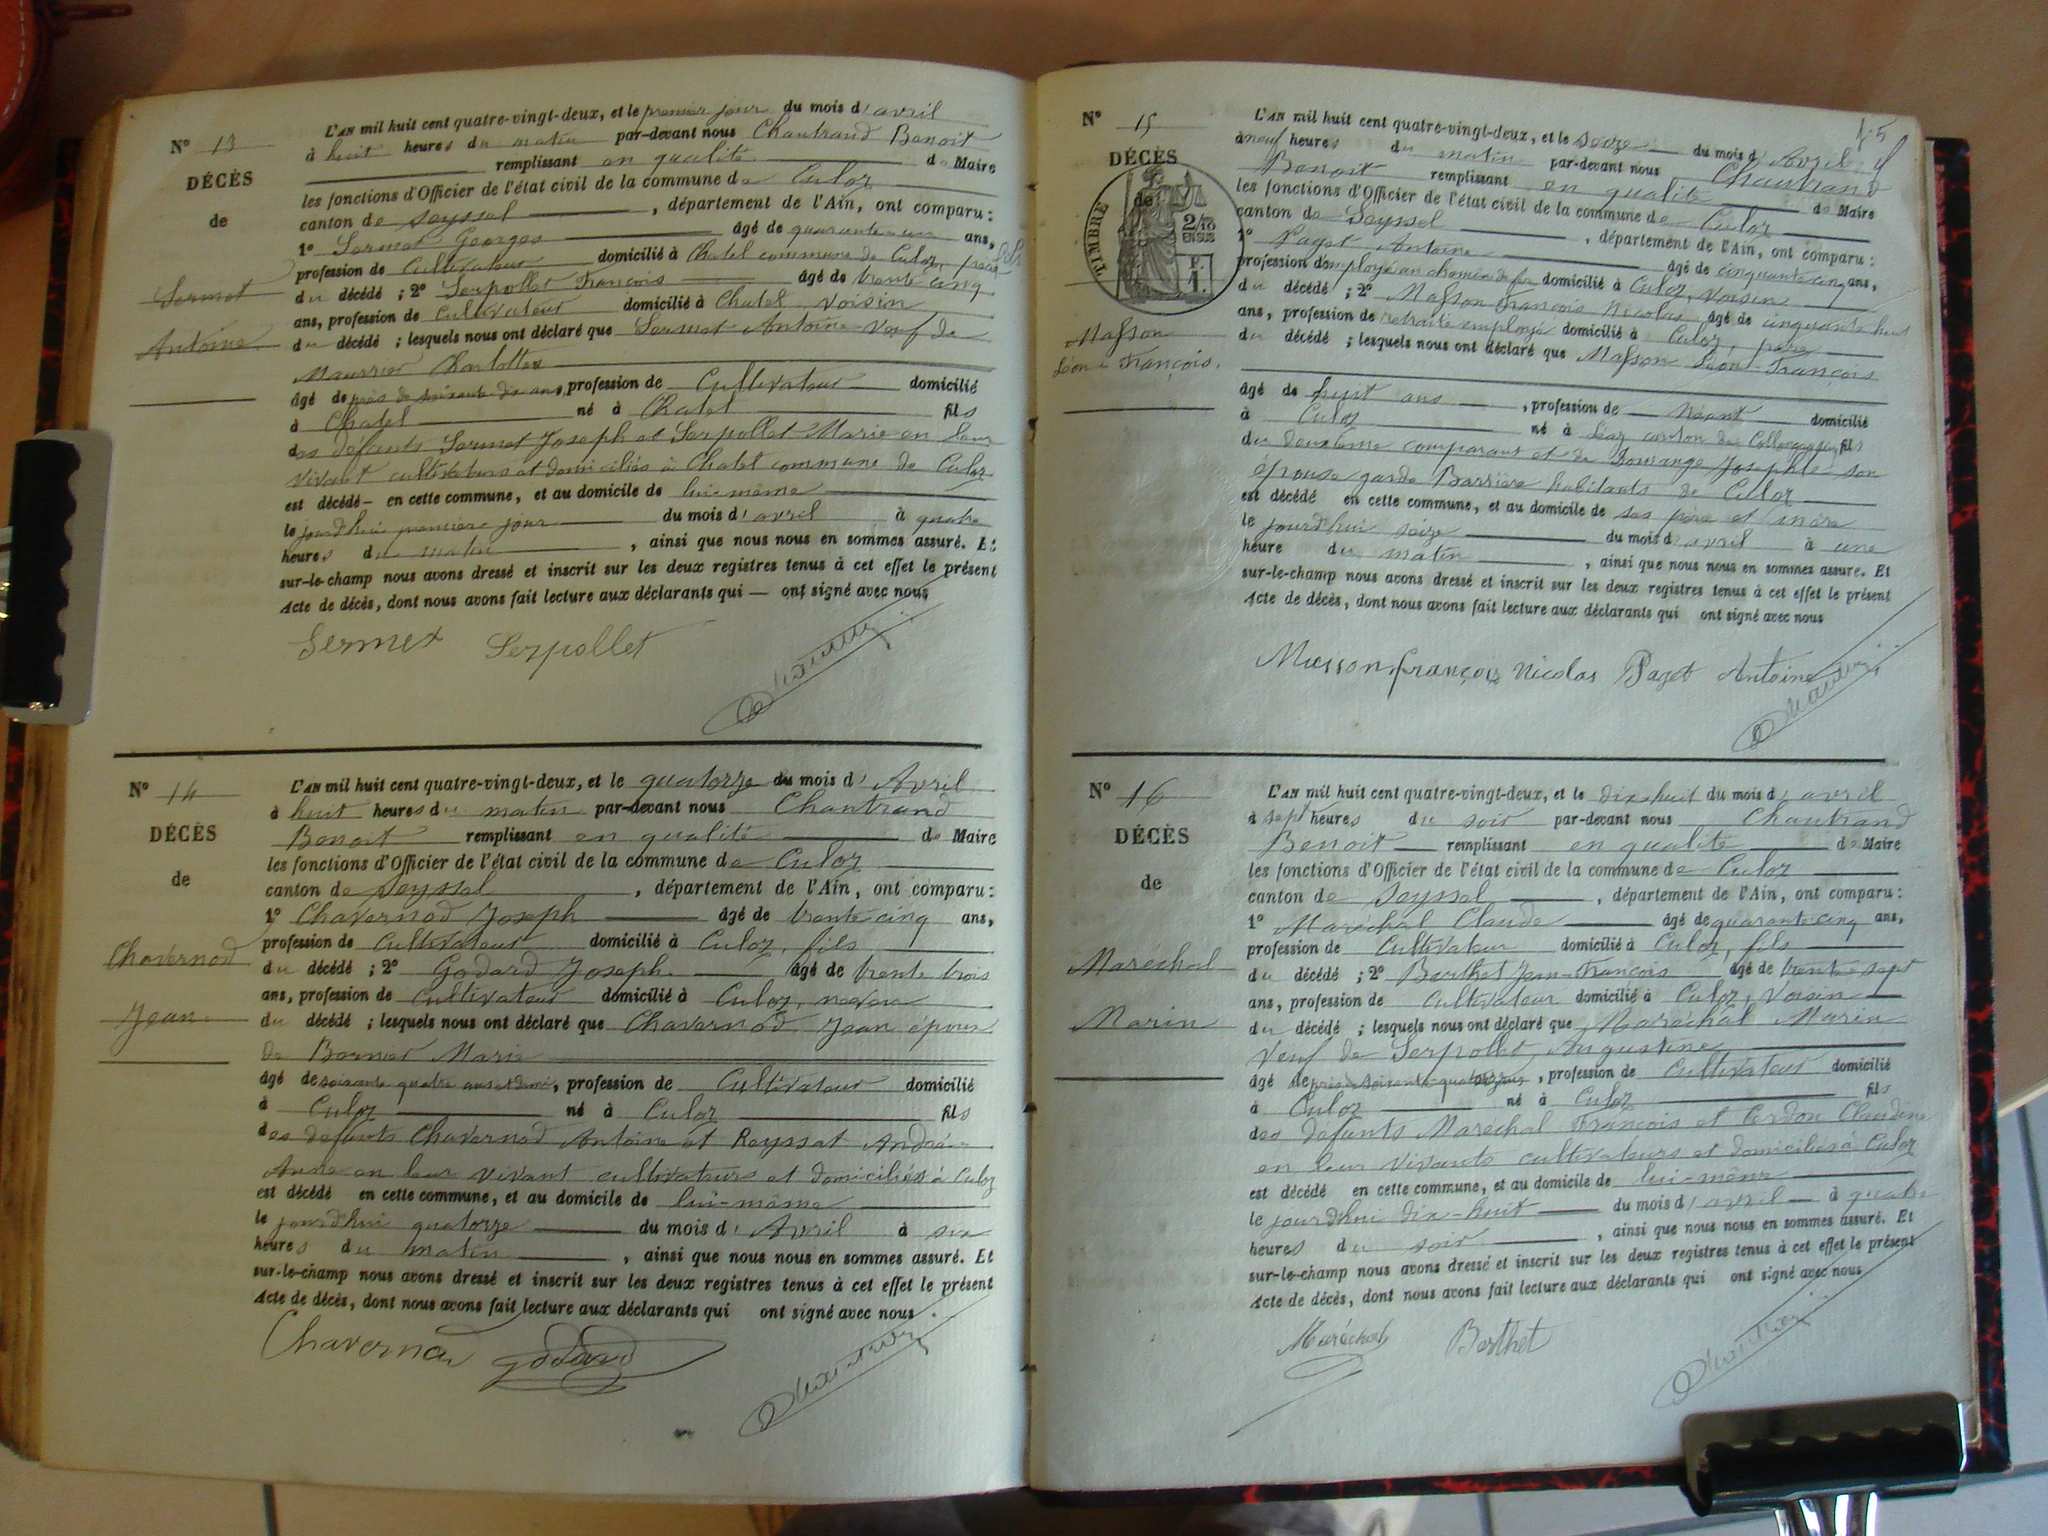 N° 13
DÉCÈS
de
Sermet
Antoine
L'AN mil huit cent quatre-vingt-deux, et le premier jour du mois d'avril
à huit heures du matin par-devant nous Chantrand Benoit
remplissant en qualité de Maire
les fonctions d'Officier de l'état civil de la commune de Culoz
canton de Seyssel, département de l'Ain, ont comparu :
1° Sermet Georges âgé de quarante-un ans,
profession de Cultivateur domicilié à Chatel commune de Culoz,
du décédé ; 2° Serpollet François âgé de trente cinq
ans, profession de Cultivateur domicilié à Chatel, voisin
du décédé ; lesquels nous ont déclaré que Sermet Antoine Veuf de
Meunier Charlotte
âgé de près de soixante dix ans, profession de Cultivateur domicilié
à Chatel né à Chatel fils
des défunts Sermet Joseph et Serpollet Marie en leur
vivant cultivateurs et domiciliés à Chatel commune de Culoz
est décédé en cette commune, et au domicile de lui-même
le jourd'hui premier jour du mois d'avril à quatre
heures du matin, ainsi que nous nous en sommes assuré. Et
sur-le-champ nous avons dressé et inscrit sur les deux registres tenus à cet effet le présent
Acte de décès, dont nous avons fait lecture aux déclarants qui — ont signé avec nous
Sermet Serpollet
N° 14
DÉCÈS
de
Chavernod
Jean
L'AN mil huit cent quatre-vingt-deux, et le quatorze du mois d'Avril
à huit heures du matin par-devant nous Chantrand
Benoit remplissant en qualité de Maire
les fonctions d'Officier de l'état civil de la commune de Culoz
canton de Seyssel, département de l'Ain, ont comparu :
1° Chavernod Joseph âgé de trente cinq ans,
profession de Cultivateur domicilié à Culoz, fils
du décédé ; 2° Godard Joseph âgé de trente trois
ans, profession de Cultivateur domicilié à Culoz, neveu
du décédé ; lesquels nous ont déclaré que Chavernod Jean époux
de Bornier Marie
âgé de soixante quatre ans et demi, profession de Cultivateur domicilié
à Culoz né à Culoz fils
des défunts Chavernod Antoine et Reyssat Andréa
Anne en leur vivant cultivateurs et domiciliés à Culoz
est décédé en cette commune, et au domicile de lui-même
le jourd'hui quatorze du mois d'Avril à six
heures du matin, ainsi que nous nous en sommes assuré. Et
sur-le-champ nous avons dressé et inscrit sur les deux registres tenus à cet effet le présent
Acte de décès, dont nous avons fait lecture aux déclarants qui ont signé avec nous
Chavernod Godard
N° 15
DÉCÈS
de
TIMBRE
2/10
EN SUS
F.
1.
Masson
Léon François.
L'AN mil huit cent quatre-vingt-deux, et le seize du mois d'Avril
à neuf heures du matin par-devant nous Chantrand
Benoit remplissant en qualité de Maire
les fonctions d'Officier de l'état civil de la commune de Culoz
canton de Seyssel, département de l'Ain, ont comparu :
1° Paget Antoine âgé de cinquante cinq ans,
profession d'employé au chemin de fer domicilié à Culoz, voisin
du décédé ; 2° Masson François Nicolas âgé de cinquante huit
ans, profession de retraité employé domicilié à Culoz, père
du décédé ; lesquels nous ont déclaré que Masson Léon François
âgé de huit ans, profession de Néant domicilié
à Culoz né à Léaz canton de Collonges fils
du deuxième comparant et de Joséphte son
épouse garde Barrière habitants de Culoz
est décédé en cette commune, et au domicile de ses père et mère
le jourd'hui seize du mois d'avril à une
heure du matin, ainsi que nous nous en sommes assuré. Et
sur-le-champ nous avons dressé et inscrit sur les deux registres tenus à cet effet le présent
Acte de décès, dont nous avons fait lecture aux déclarants qui ont signé avec nous
Musson françois Nicolas Paget Antoine
N° 16
DÉCÈS
de
Maréchal
Marin
L'AN mil huit cent quatre-vingt-deux, et le dix-huit du mois d'avril
à sept heures du soir par-devant nous Chantrand
Benoit remplissant en qualité de Maire
les fonctions d'Officier de l'état civil de la commune de Culoz
canton de Seyssel, département de l'Ain, ont comparu :
1° Maréchal Claude âgé de quarante cinq ans,
profession de Cultivateur domicilié à Culoz, fils
du décédé ; 2° Berthet Jean-François âgé de trente-sept
ans, profession de Cultivateur domicilié à Culoz, Voisin
du décédé ; lesquels nous ont déclaré que Maréchal Marin
Veuf de Serpollet Augustine
âgé de près de soixante-quatorze ans, profession de Cultivateur domicilié
à Culoz né à Culoz fils
des défunts Maréchal François et Cerdon Claudine
en leur vivants cultivateurs et domiciliés à Culoz
est décédé en cette commune, et au domicile de lui-même
le jourd'hui dix-huit du mois d'avril à quatre
heures du soir, ainsi que nous nous en sommes assuré. Et
sur-le-champ nous avons dressé et inscrit sur les deux registres tenus à cet effet le présent
Acte de décès, dont nous avons fait lecture aux déclarants qui ont signé avec nous
Maréchal Berthet